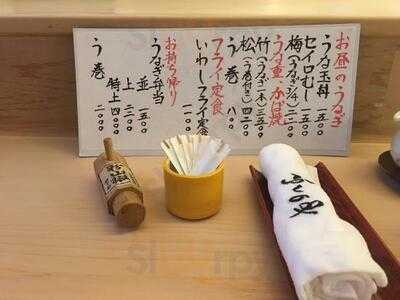 お昼のうなぎ
うな玉丼 一五〇〇
セイロむし 一五〇〇
うな重、かば焼
梅(うなぎ3/4) 二一〇〇
竹(うなぎ一本)
松(う巻付き) 四二〇〇
う巻 八〇〇
フライ定食
いわしフライ定食 一一〇〇
お持ち帰り
うなぎ弁当
並 一五〇〇
上
特上 四〇〇〇
う巻 二〇〇〇